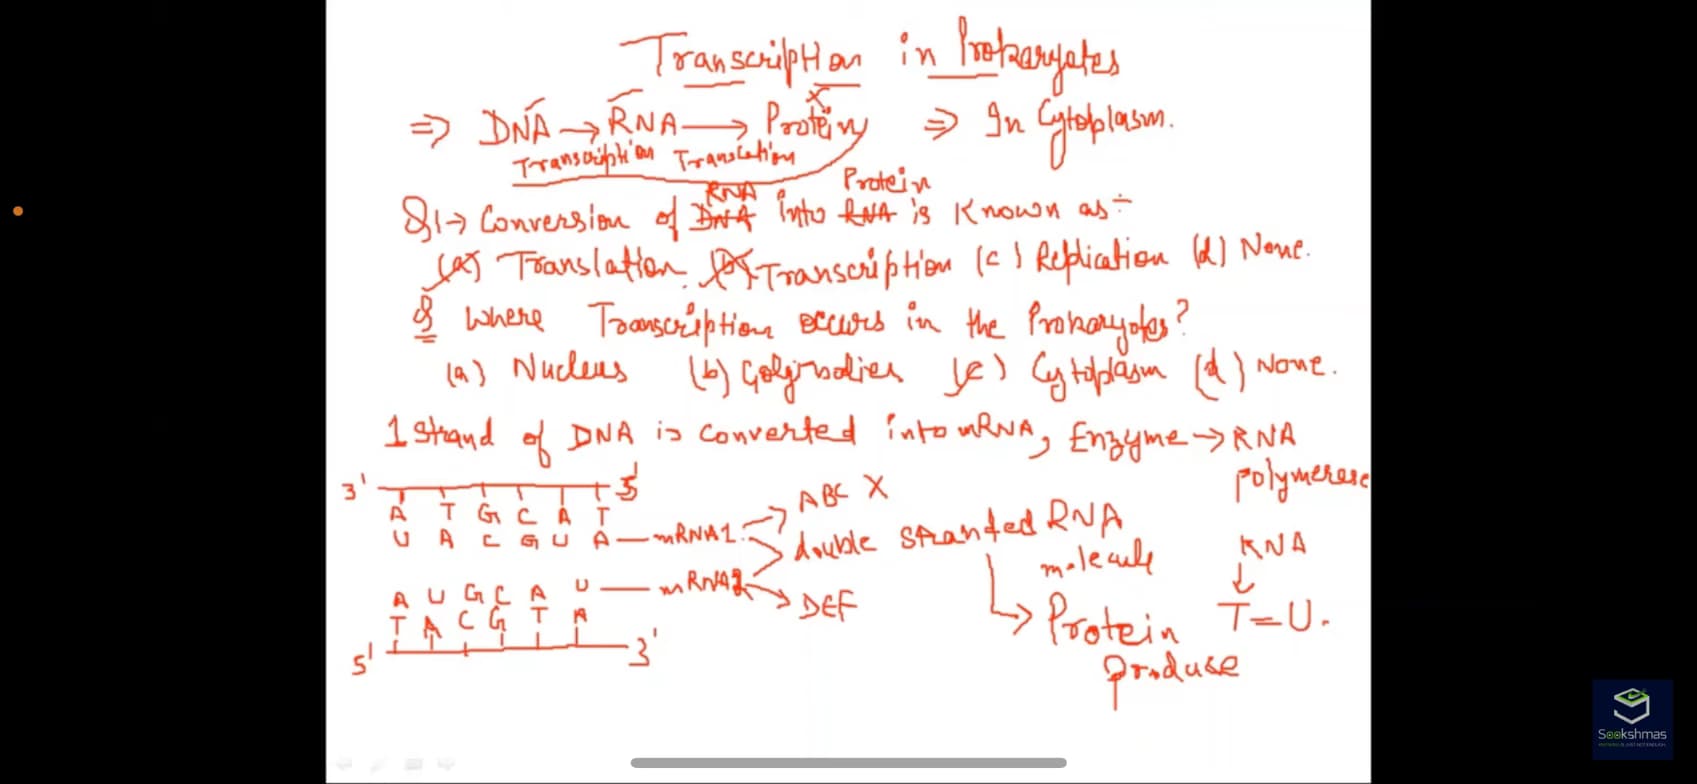 Transcription in Prokaryotes
⇒ DNA → RNA → Protein ⇒ In Cytoplasm.
Transcription Translation
RNA Protein
Q1→ Conversion of DNA into RNA is Known as÷
(a) Translation. (b) Transcription (c) Replication (d) None.
Q Where Transcription occurs in the Prokaryotes?
(a) Nucleus (b) Golgibodies (c) Cytoplasm (d) None.
1 Strand of DNA is converted into mRNA, Enzyme → RNA
polymerese
3' 5'
A T G C A T
U A C G U A — mRNA1.
ABC X
double stranted RNA
molecule
A U G C A U — mRNA2
DEF
T A C G T A
5' 3'
Protein
produce
RNA
T=U.
Sookshmas